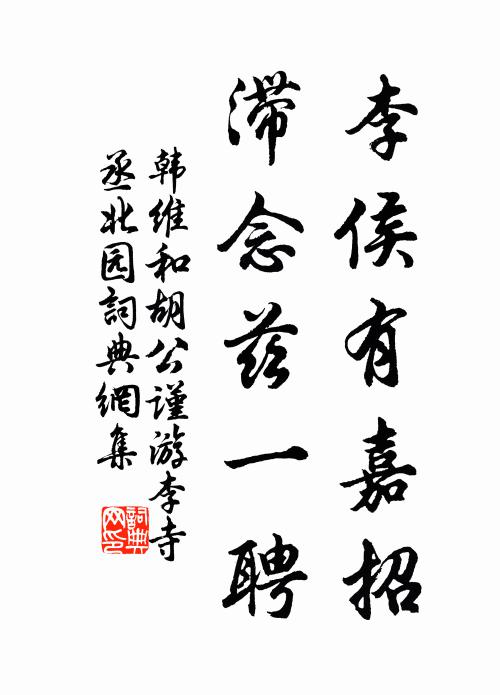 李侯有嘉招
滞念兹一聘
韩维和胡公谨游李寺
丞北园詞典網集
詞典
网印